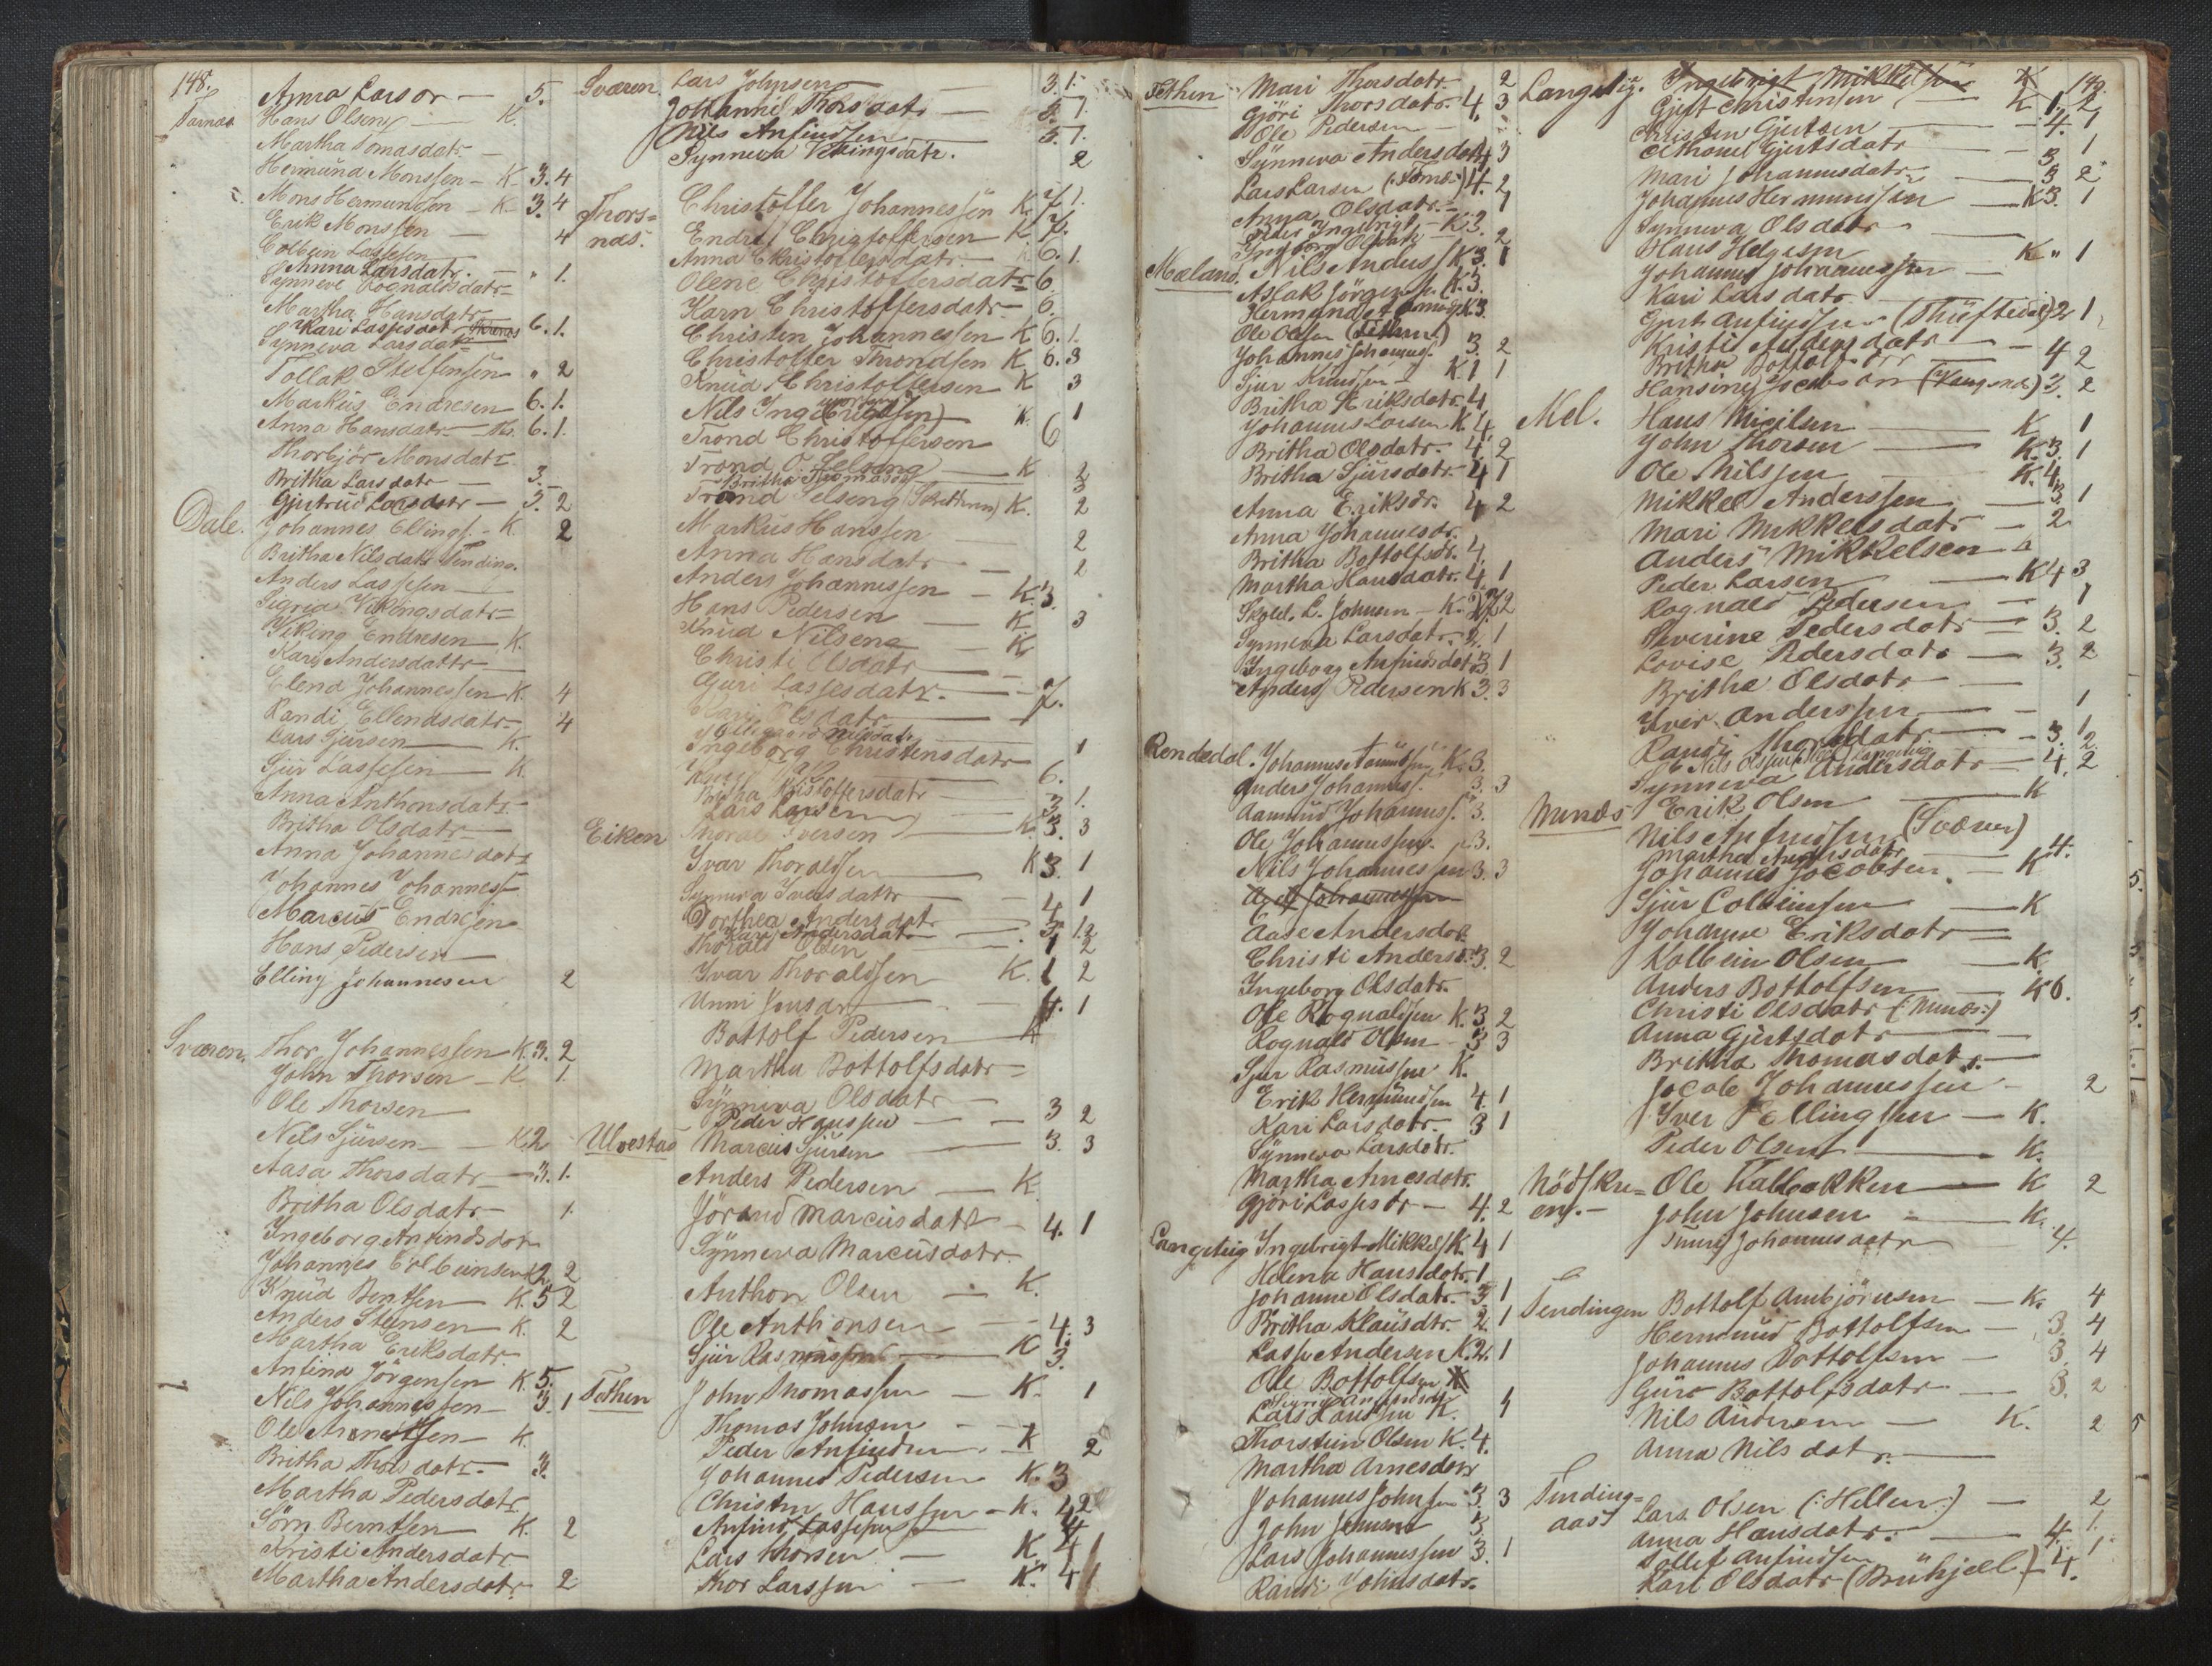 148.
Anna Larsdr — 5.
Tarnas Hans Olsen — K.
Martha Tomasdatr —
Hermund Monssen — K. 3. 4
Mons Hermundsen — K. 3. 4
Erik Monssen — 4
Colbein Lassesen
Anna Larsdatr. — " 1.
Synneve Rognaldsdatr
Martha Hansdatr
Kari Lassesdatr 6. 1.
Synneva Larsdatr
Tollak Steffensen " 2
Markus Endresen 6. 1.
Anna Hansdatr 6. 1.
Thorbjør Monsdatr
Britha Larsdatr — 3.
Gjertrud Larsdatr — 3. 2
Dale. Johannes Ellings. — K. 2
Britha Nilsdatr Tending.
Anders Lassesen —
Sigria Vikingsdatr
Viking Endresen — K.
Kari Andersdattr —
Elend Johannessen K. 4
Randi Ellendsdatr 4
Lars Sjursen — K.
Sjur Lassesen — K
Anna Anthonsdatr
Britha Olsdatr
Anna Johannesdatr
Johannes Johannes.
Marcus Endresen
Hans Pedersen
Elling Johannesen 2
Sværen. Thor Johannessen K. 3. 2
John Thorsen — K 1.
Ole Thorsen
Nils Sjursen — K 2
Aasa Thorsdatr — 3. 1.
Britha Olsdatr 1.
Ingeborg Anfindsdatr
Johannes Colbeinsen 2 2
Knud Bentsen — K. 5 2
Anders Steinsen — K. 2
Martha Eriksdatr.
Anfind Jörgensen K. 5.
Nils Johannessen — 3. 1
Ole K.
Britha Thorsdatr. 3.
Martha Pedersdatr
Sörn Berntsen — K. 2
Kristi Andersdatr
Martha Andersdatr 2
Sværen. Lars Johnsen — 3. 1.
Johanne Thorsdatr — 3. 1.
Nils Anfindsen — 3. 1.
Synneva Vikingsdatr. 2
Thors=
næs. Christoffer Johannessen K. 7. 1.
Endre Christoffersen K. 7.
Anna Christoffersdatr — 6. 1.
Olene Christoffersdatr 6.
Karn Christoffersdatr — 6.
Christen Johannessen K 6. 1.
Christoffer Throndsen K 6. 3
Knud Christoffersen K 3
Nils K. 1
Trond Christoffersen 6
Trond O. Selseng — K 2
Britha Thomasdr 3
Trond Selseng K. 2
Markus Hanssen — 2
Anna Hansdatr — 2
Anders Johannessen — K. 3.
Hans Pedersen — K 3
Knud Nilseng — K
Christi Olsdatr
Guri Lassesdatr. — 7.
Kari Olsdatr
Nilsdatr
Ingeborg Christensdatr 1
6.
Britha Kristoffersdatr 3 1.
Lars Larsen 3
Eiken Thorald Iversen K. 3. 3
Ivar Thoraldsen K 3. 1
Synneva Iversdattr — 4 1
Dorthea Andersdatr
Kari Andersdatr — 3. 1.2
Thorald Olsen 1 2
Ivar Thoraldsen K. 1 2
Unni — 4. 1
Bottolf Pedersen — K
Martha Bottolfsdatr
Synneva Olsdatr
Peder Hanssen — 3 2
Ulvestad Marcus Sjursen — 3. 3
Anders Pedersen — K.
Jörand Marcusdatr — 4. 1
Synneva Marcusdatr.
Anthon Olsen — K.
Ole Anthonsen — 4. 3
Sjur Rasmussen — K 3.
Fethen John Thomassen — K. 1
Thomas Johnsen —
Peder Anfindsen — K 2
Johannes Pedersen K. 3
Christen Hanssen — K. 4 2
Anfind Lassesen 4
Lars Thorsen — K 4 1
Thor Larssen — K. 4 1
Fethen Mari Thorsdatr. 2
Gjöri Thorsdatr. 4. 3
Ole Pedersen —
Synneva Andersdatr 4 3
Lars Larsen 4. 2
Anna Olsdatr. — 1
Peder Ingebrigt. — K. 3.
Ingeborg Olsdatr 2
Mæland. Nils Anders K 3. 1
Aslak Jörgens. K. 3.
Hermund K 3.
Ole Olsen (Fethen.)
Johannes Johannes. 3. 2
Sjur Knudsen — K 1 1
Britha Eriksdatr. 4
Johannes Larsen K. 4.
Britha Olsdatr. 4. 2
Britha Sjursdatr. 4 1
Anna Eriksdr. 4 2
Anna Johannesdr.
Britha Bottolfsdr. 4
Martha Hansdatr. 4. 1
Skoll. L. Johnsen — K. 2
Synneva Larsdatr. 2. 1
Ingeborg Anfindsdatr 3 1
Anders Pedersen K 3. 3
Rendedal. Johannes Aamundsen K. 3.
Anders Johannes. 3. 3
Aamund Johannes. 3.
Ole Johannessen. 3.
Nils Johannessen 3. 3
Aase Andersdatr.
Christi Andersdr. 3. 2
Ingeborg Olsdatr.
Ole Rognaldsen K. 3 2
Rognald Olsen 3 3
Sjur Rasmussen K.
Erik Hermundsen 4 1
Kari Larsdatr. 3 1
Synneva Larsdatr.
Martha Arnesdatr.
Gjöri Lassesdr — 4. 2
Langeteig Ingebrigt Mikkels. K. 4 1
Helena Hansdatr. 1
Johanne Olsdatr. 3 1
Britha Klausdtr. 2. 1
Lasse Andersen K. 2. 1
Ole Bottolfsen K
Lars Hanssen K. 4
Thorstein Olsen K. 4.
Martha Arnesdatr
Johannes Johnsen 3. 3
John Johnsen 3.
Lars Johannessen 3. 1
Randi Johnsdatr.
149.
Langeteig. Ingebrigt Mikkelsen K
Gjert Christensen — K 1. 2
Christen Gjertsen — 4. 1
Gjertsdatr — 1
Mari Johannesdatr — 3 2
Johannes Hermundsen — K 3. 1
Synneva Olsdatr —
Hans Helgesen K " 1
Johannes Johannessen —
Kari Larsdatr.
Gjert Anfindsen 2 1
Kristi Andersdatr — 4 2
Britha Bottolfsdr
3. 2
Mel. Hans Mikelsen — K 1
John Thorsen — K. 3. 1
Ole Nilssen — K. 4
Mikkel Anderssen — 3. 1
Mari Mikkelsdatr — 2
Anders Mikkelsen
Peder Larsen — K 4 3
Rognald Pedersen — 1
Severine Pedersdatr — 3. 2
Lovise Pedersdatr — 3. 2
Britha Olsdatr —
Iver Anderssen — 1
Randi Thoraldsdatr — 3. 1
Nils Olssen
Synneva Andersdatr — 4. 2
Munæs Erik Olsen — K
Nils Anfindsen (Sværen)
Martha Andersdatr 4.
Johannes Jocobsen. — K
Sjur Colbeinsen — K
Johanne Eriksdatr —
Kolbein Olsen — K.
Anders Bottolfsen — K 6.
Christi Olsdatr (:Munæs:)
Anna Gjertsdatr
Britha Thomasdatr. —
Jocob Johannessen — 2
Iver Pellingsen — K.
Peder Olsen — K.
Nödskre=
en. — Ole Kalbakken — K 2
John Johnsen — K.
Johannesdatr 4.
Tendingen Bottolf Ambjörnsen — K. 4
Hermund Bottolfsen — 3. 4
Johannes Bottolfsen — 3. 4
Guro Bottolfsdatr — 3. 2
Nils Andersen — K. 2
Anna Nilsdatr. —
Tending=
aas Lars Olsen (:Hellen:) — 2
Anna Hansdatr. — 4. 1.
Tollef Anfindsen 1
Kari Olsdatr (Bruhjell) — 4.